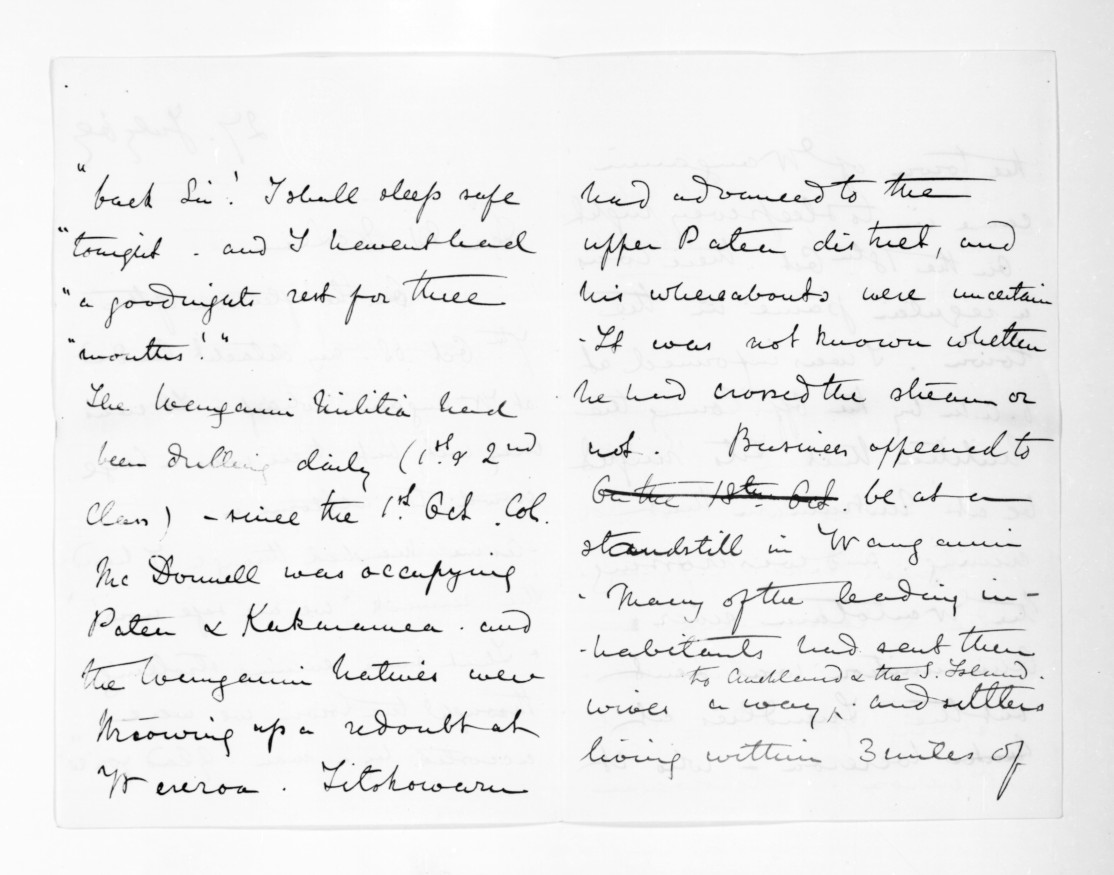 "back Sir! I shall sleep safe
"tonight - and I havent had
"a goodnights rest for three
"months!"
The Wanganui Militia had
been drilling daily (1st & 2nd
Class) - since the 1st Oct. Col.
Mc Donnell was occupying
Patea & Kakaramea. and
the Wanganui Natives were
throwing up a redoubt at
Wereroa. Titokowaru
had advanced to the
upper Patea district, and
his whereabouts were uncertain
- It was not known whether
he had crossed the stream or
not. Business appeared to
On the 18th Oct be at a
standstill in Wanganui
- Many of the leading in-
-habitants had sent their
to Auckland & the S. Island.
wives away, and settlers
living within 3 miles of